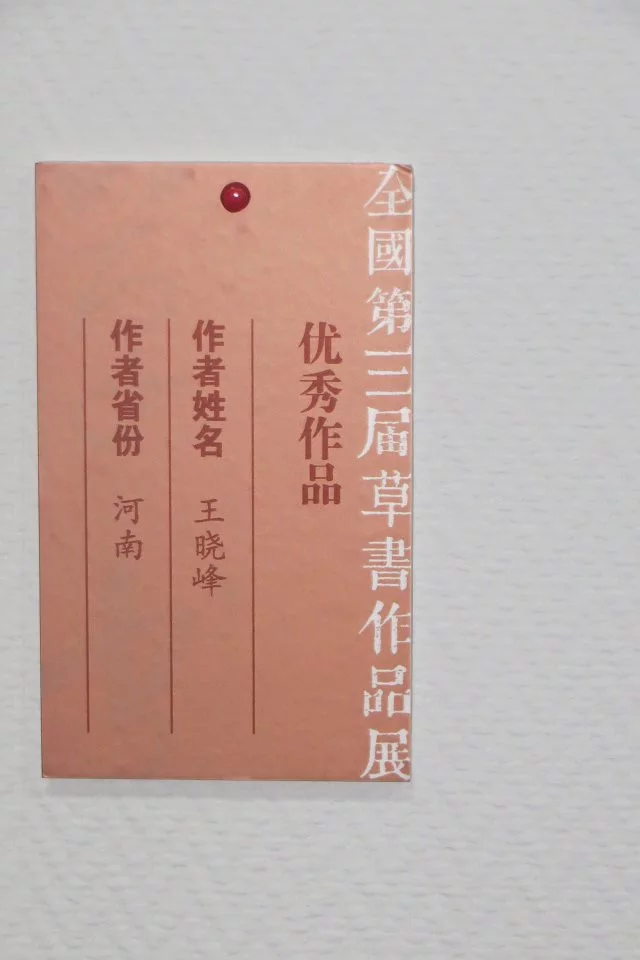 全國第三届草書作品展
优秀作品
作者姓名 王晓峰
作者省份 河南